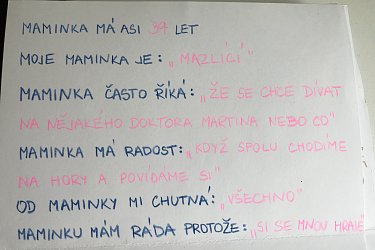 MAMINKA MÁ ASI 37 LET
MOJE MAMINKA JE: „MAZLÍCÍ"
MAMINKA ČASTO ŘÍKÁ: „ŽE SE CHCE DÍVAT
NA NĚJAKÉHO DOKTORA MARTINA NEBO CO"
MAMINKA MÁ RADOST: „KDYŽ SPOLU CHODÍME
NA HORY A POVÍDÁME SI"
OD MAMINKY MI CHUTNÁ: „VŠECHNO"
MAMINKU MÁM RÁDA PROTOŽE: „SI SE MNOU HRAJE"